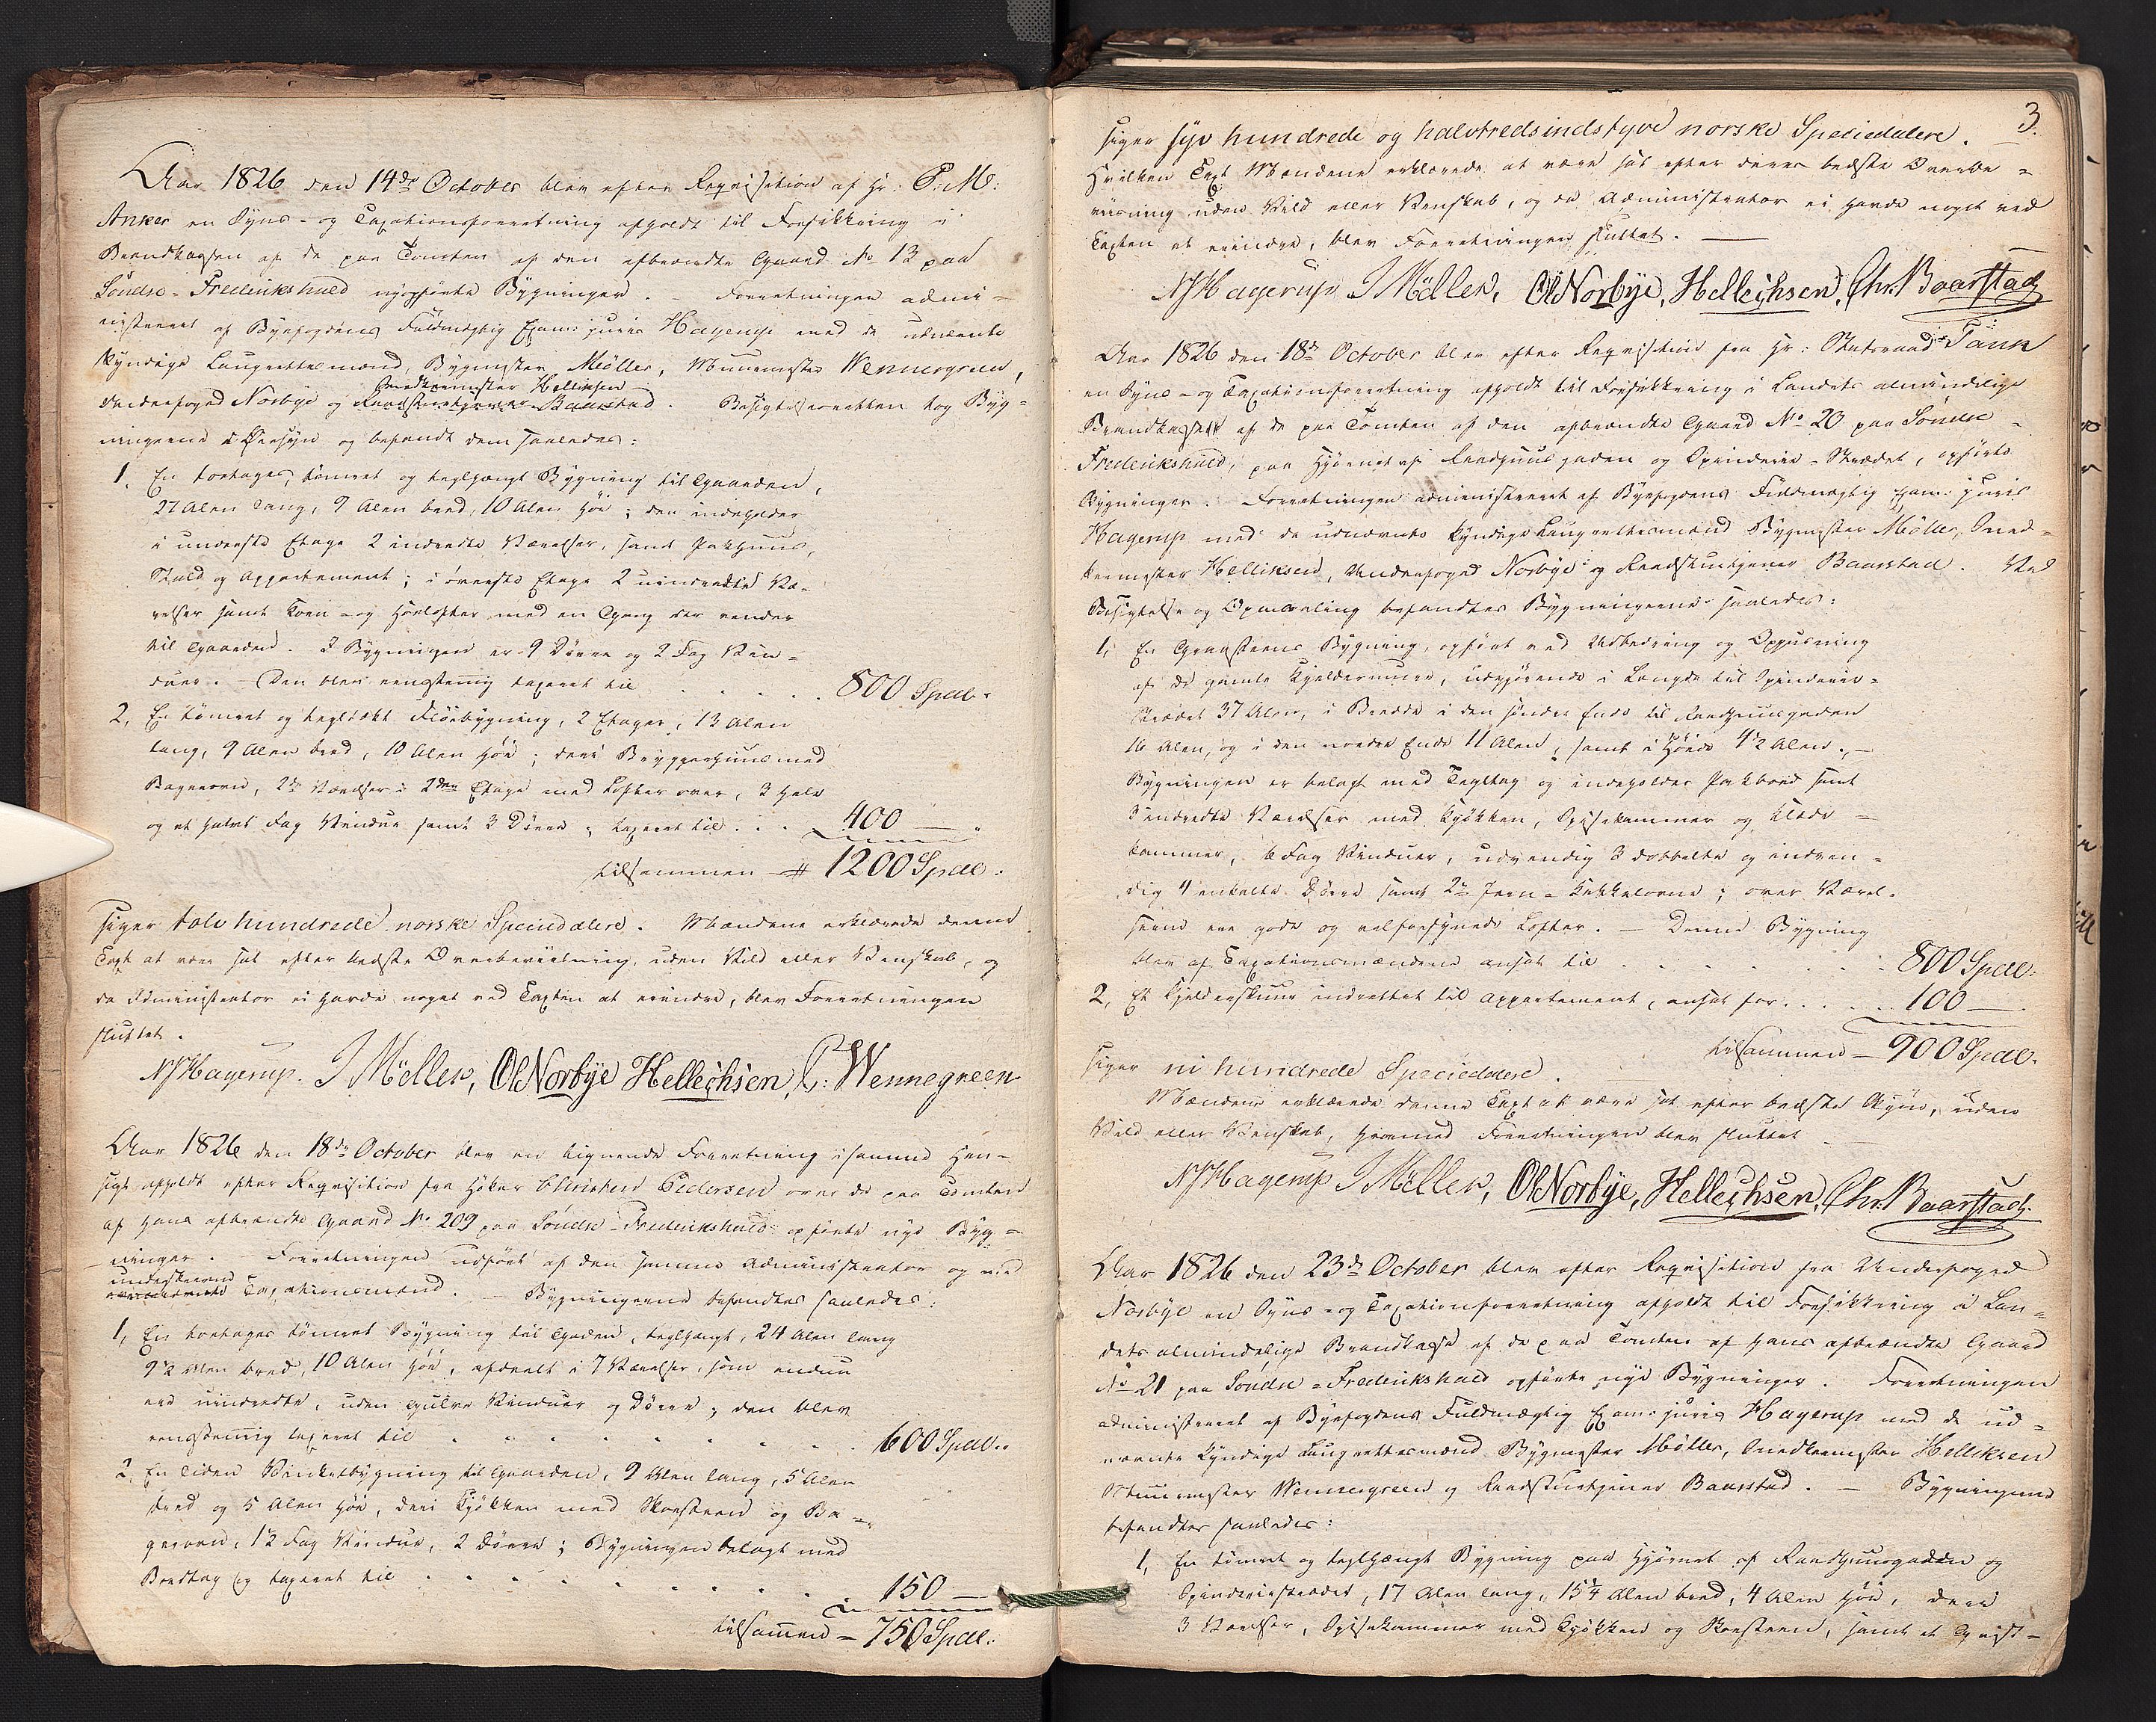 Aar 1826 den 14de October blev efter Reqvisition af Hr: P: M:
Anker en Syns- og Taxationsforretning afholdt til Forsikkring i
Brandkassen af de paa Tomten af den afbrændte Gaard No 13 paa
Søndre-Frederikshald nyopførte Bygninger. - Forretningen admi-
nistreret af Byefogdens Fuldmægtig Exam: juris Hagerup med de udnævnte
kyndige Laugrettesmænd, Bygmester Møller, Muurmester Wennergreen,
Snedkermester Helliksen
Underfoged Norbye og Raadstuetjener Baarstad. Besigtelsesretten tog Byg-
ningerne i Øiesyn og befandt dem saaledes:
1. En toetages, tømret og teglhængt Bygning til Gaarden,
27 Alen lang, 9 Alen bred, 10 Alen høi; den indeholder
i underste Etage 2 indredte Værelser, samt Pakhuus,
Stald og Appartement; i øverste Etage 2 uindredte Væ-
relser samt Korn- og Høelofter med en Gang der vender
til Gaarden. I Bygningen er 9 Dørre og 2 Fag Vin-
duer. - Den blev eenstemmig taxeret til . . . . . . 800 Spd.
2, En tømret og tegltækt Fløibygning, 2 Etager, 13 Alen
lang, 9 Alen bred, 10 Alen høi; deri Bryggerhuus med
Bagerovn, 2de Værelser i 2den Etage med Lofter over, 3 hele
og et halvt Fag Vindue samt 3 Dørre, taxeret til . . . 400 —
tilsammen # 1200 Spd.
siger tolv hundrede norske Speciedalere. Mændene erklærede denne
Taxt at være sat efter bedste Overbeviisning, uden Vild eller Venskab, og
da Administrator ei havde noget ved Taxten at erindre, blev Forretningen
sluttet.
NJHagerup. J Möller, OlNorbye Hellechsen, C: Wennegreen
Aar 1826 den 18de October blev en lignende Forretning i samme Hen-
sigt afholdt efter Reqvisition fra Høker Christen Pedersen over de paa Tomten
af hans afbrændte Gaard No 209 paa Søndre-Frederikshald opførte nye Byg-
ninger. - Forretningen udført af den samme Administrator og med
underskrevne
Taxationsmænd. - Bygningerne befandtes saaledes:
1, En toetages tømret Bygning til Gaden, teglhængt, 24 Alen lang
9½ Alen bred, 10 Alen høi, afdeelt i 7 Værelser, som endnu
ere uindredte, uden Gulve Vinduer og Dørre; den blev
eenstemmig taxeret til . . . . . . . . 600 Spd.
2, En liden Vinkelbygning til Gaarden, 9 Alen lang, 5 Alen
bred og 5 Alen høi, deri Kjøkken med Skorsteen og Ba-
gerovn, 1½ Fag Vindue, 2 Dørre; Bygningen belagt med
Bordtag og taxeret til . . . . . . . 150 —
tilsammen - 750 Spd.
3.
siger syv hundrede og halvtredsindstyve norske Speciedalere.
Hvilken Taxt Mændene erklærede at være sat efter deres bedste Overbe-
viisning uden Vild eller Venskab, og da Administrator ei havde noget ved
Taxten at erindre, blev Forretningen sluttet.
NJHagerup J Möller, OlNorbye, Hellechsen, Chr. Baarstad
Aar 1826 den 18de October blev efter Reqvisition fra Hr: Statsraad Tank
en Syns- og Taxationsforretning afholdt til Forsikkring i Landets almindelige
Brandkasse af de paa Tomten af den afbrændte Gaard No 20 paa Søndre-
Frederikshald, paa Hjørnet af Raadhuusgaden og Spinderie-Strædet, opførte
Bygninger. Forretningen administreret af Byefogdens Fuldmægtig Exam: juris
Hagerup med de udnævnte kyndige Laugrettesmænd Bygmester Møller, Sned-
kermester Helliksen, Underfoged Norbye og Raadstuetjener Baarstad. Ved
Besigtelse og Opmaaling befandtes Bygningerne saaledes:
1, En Graasteens Bygning, opført ved Udbedring og Oppudsning
af de gamle Kjeldermure, udgjørende i Længde til Spinderie-
Strædet 37 Alen, i Bredde i den søndre Ende til Raadhuusgaden
16 Alen, og i den nordre Ende 11 Alen, samt i Høide 4½ Alen. —
Bygningen er belagt med Tegltag og indeholder Pakbod samt
3 indredte Værelser med Kjøkken, Spisekammer og Klæde-
kammer, 6 Fag Vinduer, udvendig 3 dobbelte og indven-
dig 4 enkelte Dørre samt 2de Jern-Kakkelovne; over Værel-
serne ere gode og velforsynede Lofter. — Denne Bygning
blev af Taxationsmændene ansat til . . . . . . 800 Spd.
2, Et Kjelderskuur indrettet til Appartement, ansat for . . . . 100 —
tilsammen - 900 Spd.
siger ni hundrede Speciedalere.
Mændene erklærede denne Taxt at være sat efter bedste Skjøn, uden
Vild eller Venskab, hvormed Forretningen blev sluttet. —
NJHagerup J Möller, OlNorbye, Hellechsen, Chr. Baarstad.
Aar 1826 den 23de October blev efter Reqvisition fra Underfoged
Norbye en Syns- og Taxationsforretning afholdt til Forsikkring i Lan-
dets almindelige Brandkasse af de paa Tomten af hans afbrændte Gaard
No 21 paa Søndre-Frederikshald opførte nye Bygninger. Forretningen
administreret af Byefogdens Fuldmægtig Exam: juris Hagerup med de ud-
nævnte kyndige Laugrettesmænd Bygmester Møller, Snedkermester Helliksen
Muurmester Wennergreen og Raadstuetjener Baarstad. — Bygningerne
befandtes saaledes:
1, En tømret og teglhængt Bygning paa Hjørnet af Raadhuusgaden og
Spinderiestrædet, 17 Alen lang, 15¼ Alen bred, 4 Alen høi, deri
3 Værelser, Spisekammer med Kjøkken og Skorsteen, samt et